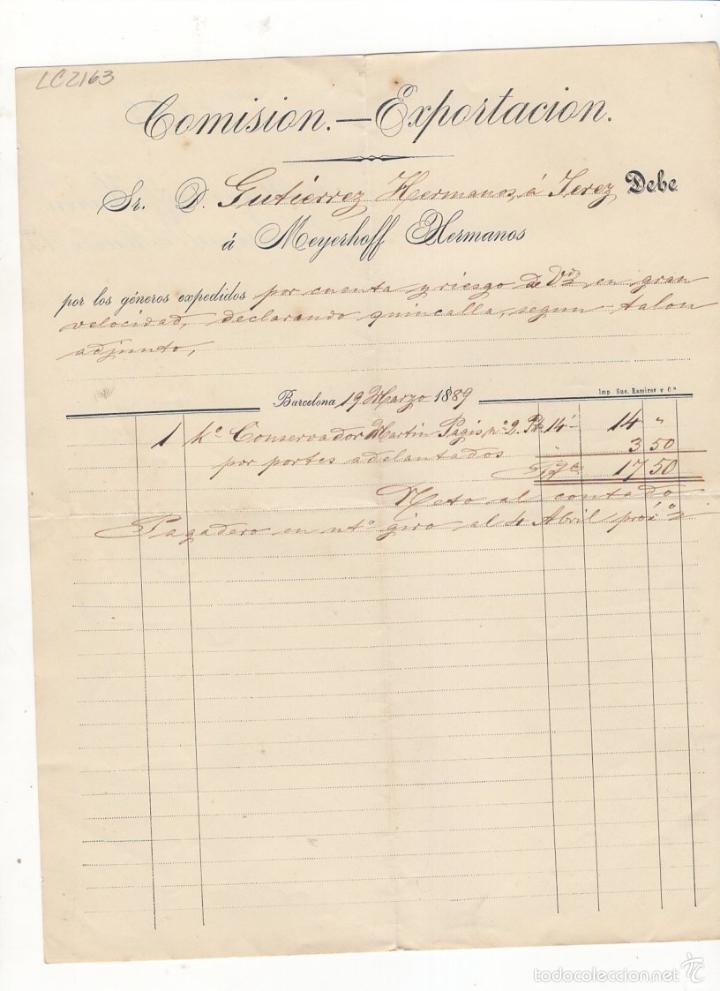 LC2163
Comision.—Exportacion.
Sr. D. Gutiérrez Hermanos, á Jerez Debe
á Meyerhoff Hermanos
por los géneros expedidos por cuenta y riesgo de en gran
velocidad, declarando quincalla, segun talon
adjunto,
Barcelona 19 Marzo 1889
Imp. Suc. Ramirez y C.ª
1 k.º Conservador Martin Pagis, n.º 2. 14 " 14 "
por portes adelantados " 3 50
17 50
Neto al contado
Pagadero en nt.º giro al 4 Abril próx.º
todocoleccion.net